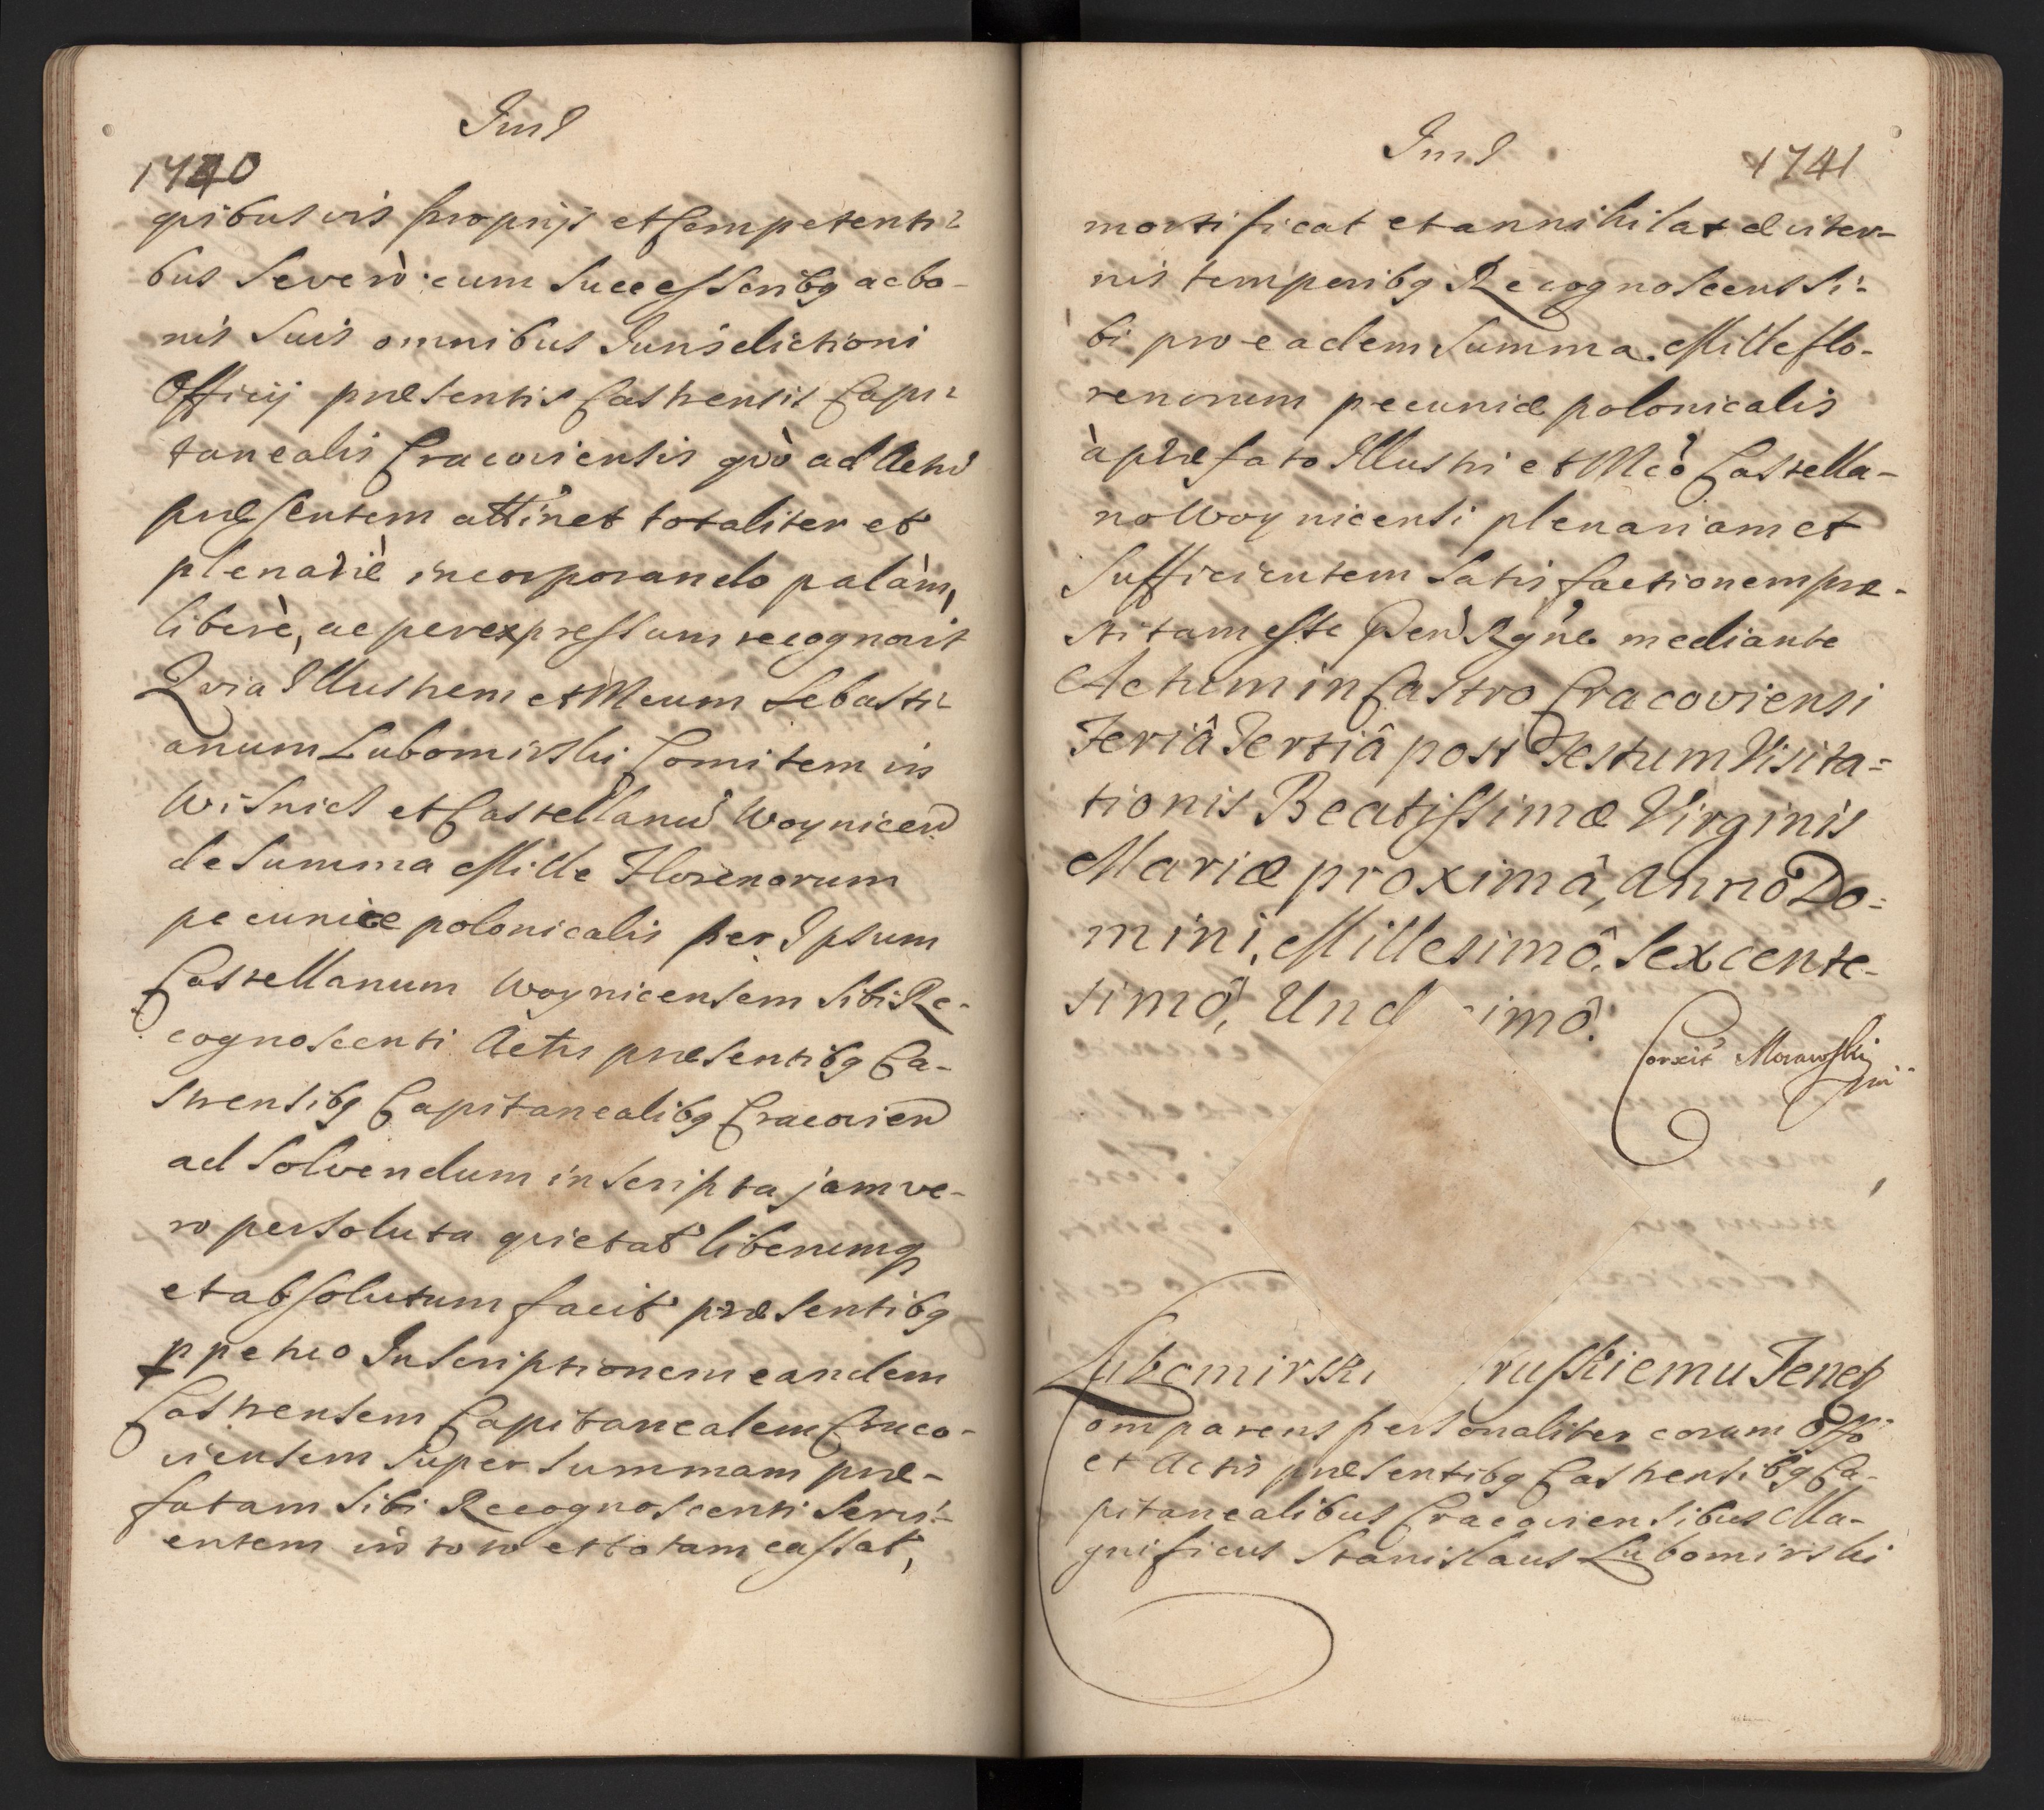 1740
quibusvis proprijs et Competenti-
bus Se verò cum Successoribq ac bo-
nis Suis omnibus Jurisdictioni
Officij præsentis Castrensis Capi-
tanealis Cracoviensis quò ad Actũ
præsentem attinet totaliter et
plenariè incorporando palàm,
liberè, ac per expressum recognovit
Quia Illustrem et Mcum Sebasti-
anum Lubomirski Comitem in
Wisnicz et Castellanũ Woynicen
de Summa Mille Florenorum
pecuniæ polonicalis per Ipsum
Castellanum Woynicensem Sibi Re-
cognoscenti Actis præsentibq Ca-
strensibq Capitanealibq Cracovien
ad Solvendum inscripta jam ve-
ro persoluta quietat liberumq
et absolutum facit præsentibq
ppetuo Inscriptionem eandem
Castrensem Capitanealem Craco-
viensem Super Summam præ-
fatam Sibi Recognoscenti Servi-
entem in toto et totam cassat,
1741
mortificat et annihilat æviter-
nis temporibq Recognoscens Si-
bi pro eadem Summa Mille flo-
renorum pecuniæ polonicalis
à præfato Illustri et Mcõ Castella-
no Woynicensi plenariam et
Sufficientem Satisfactionem præ-
stitam esse Pen Rgne mediante
Actum in Castro Cracoviensi
Feriâ Tertiâ post Festum Visita=
tionis Beatissimæ Virginis
Mariæ proximâ, Anno Do=
mini, Millesimô. Sexcente-
simô, Und imô.
Corexit Morawski
mp
Lubomirski ruskiemu Tenet
omparens personaliter coram Offo
et Actis præsentibq Castrensibq Ca-
pitanealibus Cracoviensibus Ma-
gnificus Stanislaus Lubomirski